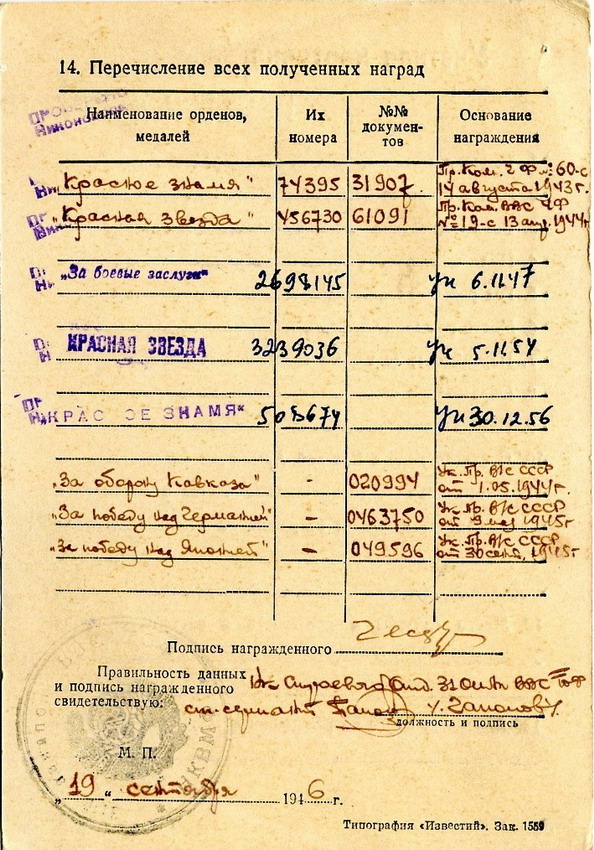 14. Перечисление всех полученных наград
Наименование орденов, медалей
Их номера
№№ докумен-тов
Основание награждения
„Красное знамя" 74395 31907. Пр. Ком. ЧФ № 60-с
14 августа 1943г.
„Красная звезда" 456730 61091 Пр. Ком. ВВС ЧФ
№ 19-с 13 апр. 1944г
„За боевые заслуги" 2698145 Ук 6.11.47
КРАСНАЯ ЗВЕЗДА 3239036 Ук 5.11.54
„КРАС ОЕ ЗНАМЯ" Ук 30.12.56
„За оборону Кавказа" - 020994 Ук. Пр. В/С СССР
от 1.05.1944г.
„За победу над Германией" - 0463750 Ук. Пр. В/С СССР
от 9 мая 1945г
„За победу над Японией" - 049596 Ук. Пр. В/С СССР
от 30 сент. 1945г
Подпись награжденного
Правильность данных
и подпись награжденного
свидетельствую:
ст. сержант
должность и подпись
М. П.
„19" сентября 1946 г.
Типография «Известий». Зак. 1559